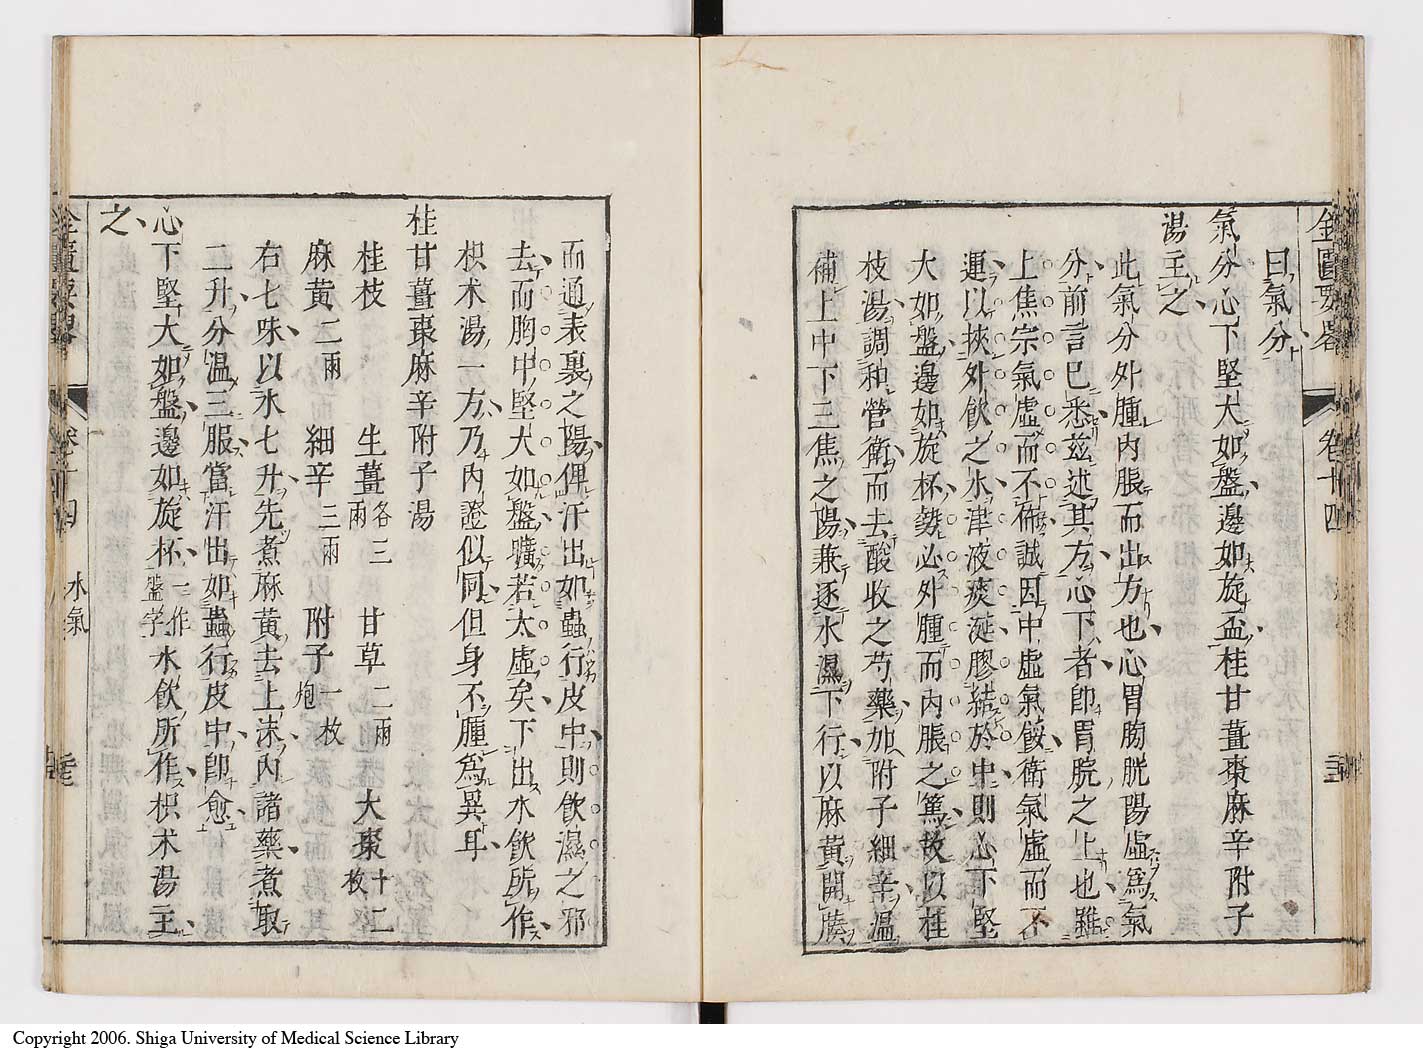 金匱要畧 卷十四
曰氣分
氣分心下堅大如盤邊如旋盃桂甘薑棗麻辛附子
湯主之
此氣分外腫内脹而出方也心胃胸胱陽虛爲氣
分前言已悉茲述其方心下者卽胃脘之上也雖
上焦宗氣虛而不佈誠因中虛氣餒衛氣虛而不
運以挾外飲之水津液痰涎膠結於中則心下堅
大如盤邊如旋杯勢必外腫而内脹之篤故以桂
枝湯調和營衛而去酸收之芍藥加附子細辛溫
補上中下三焦之陽兼逐水濕下行以麻黃開腠
而通表裏之陽俾汗出如蟲行皮中則飲濕之邪
去而胸中堅大如盤曠若太虛矣下出水飲所作
枳术湯一方乃内證似同但身不腫爲異耳
桂甘薑棗麻辛附子湯
桂枝 生薑各三兩 甘草二兩 大棗十二枚
麻黃二兩 細辛三兩 附子一枚炮
右七味以水七升先煮麻黃去上沫内諸藥煮取
二升分溫三服當汗出如蟲行皮中卽愈
心下堅大如盤邊如旋杯一作盤字水飲所作枳术湯主
之
金匱要畧 卷十四 水氣